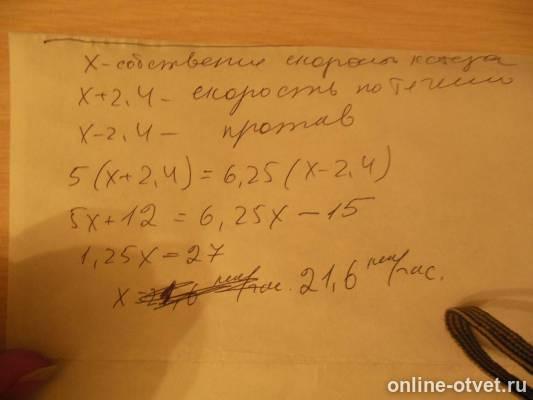 x - собственная скорость катера
x+2,4 - скорость по течению
x-2,4 - против
5(x+2,4) = 6,25(x-2,4)
5x+12 = 6,25x-15
1,25x=27
x 21,6 км/час.
online-otvet.ru